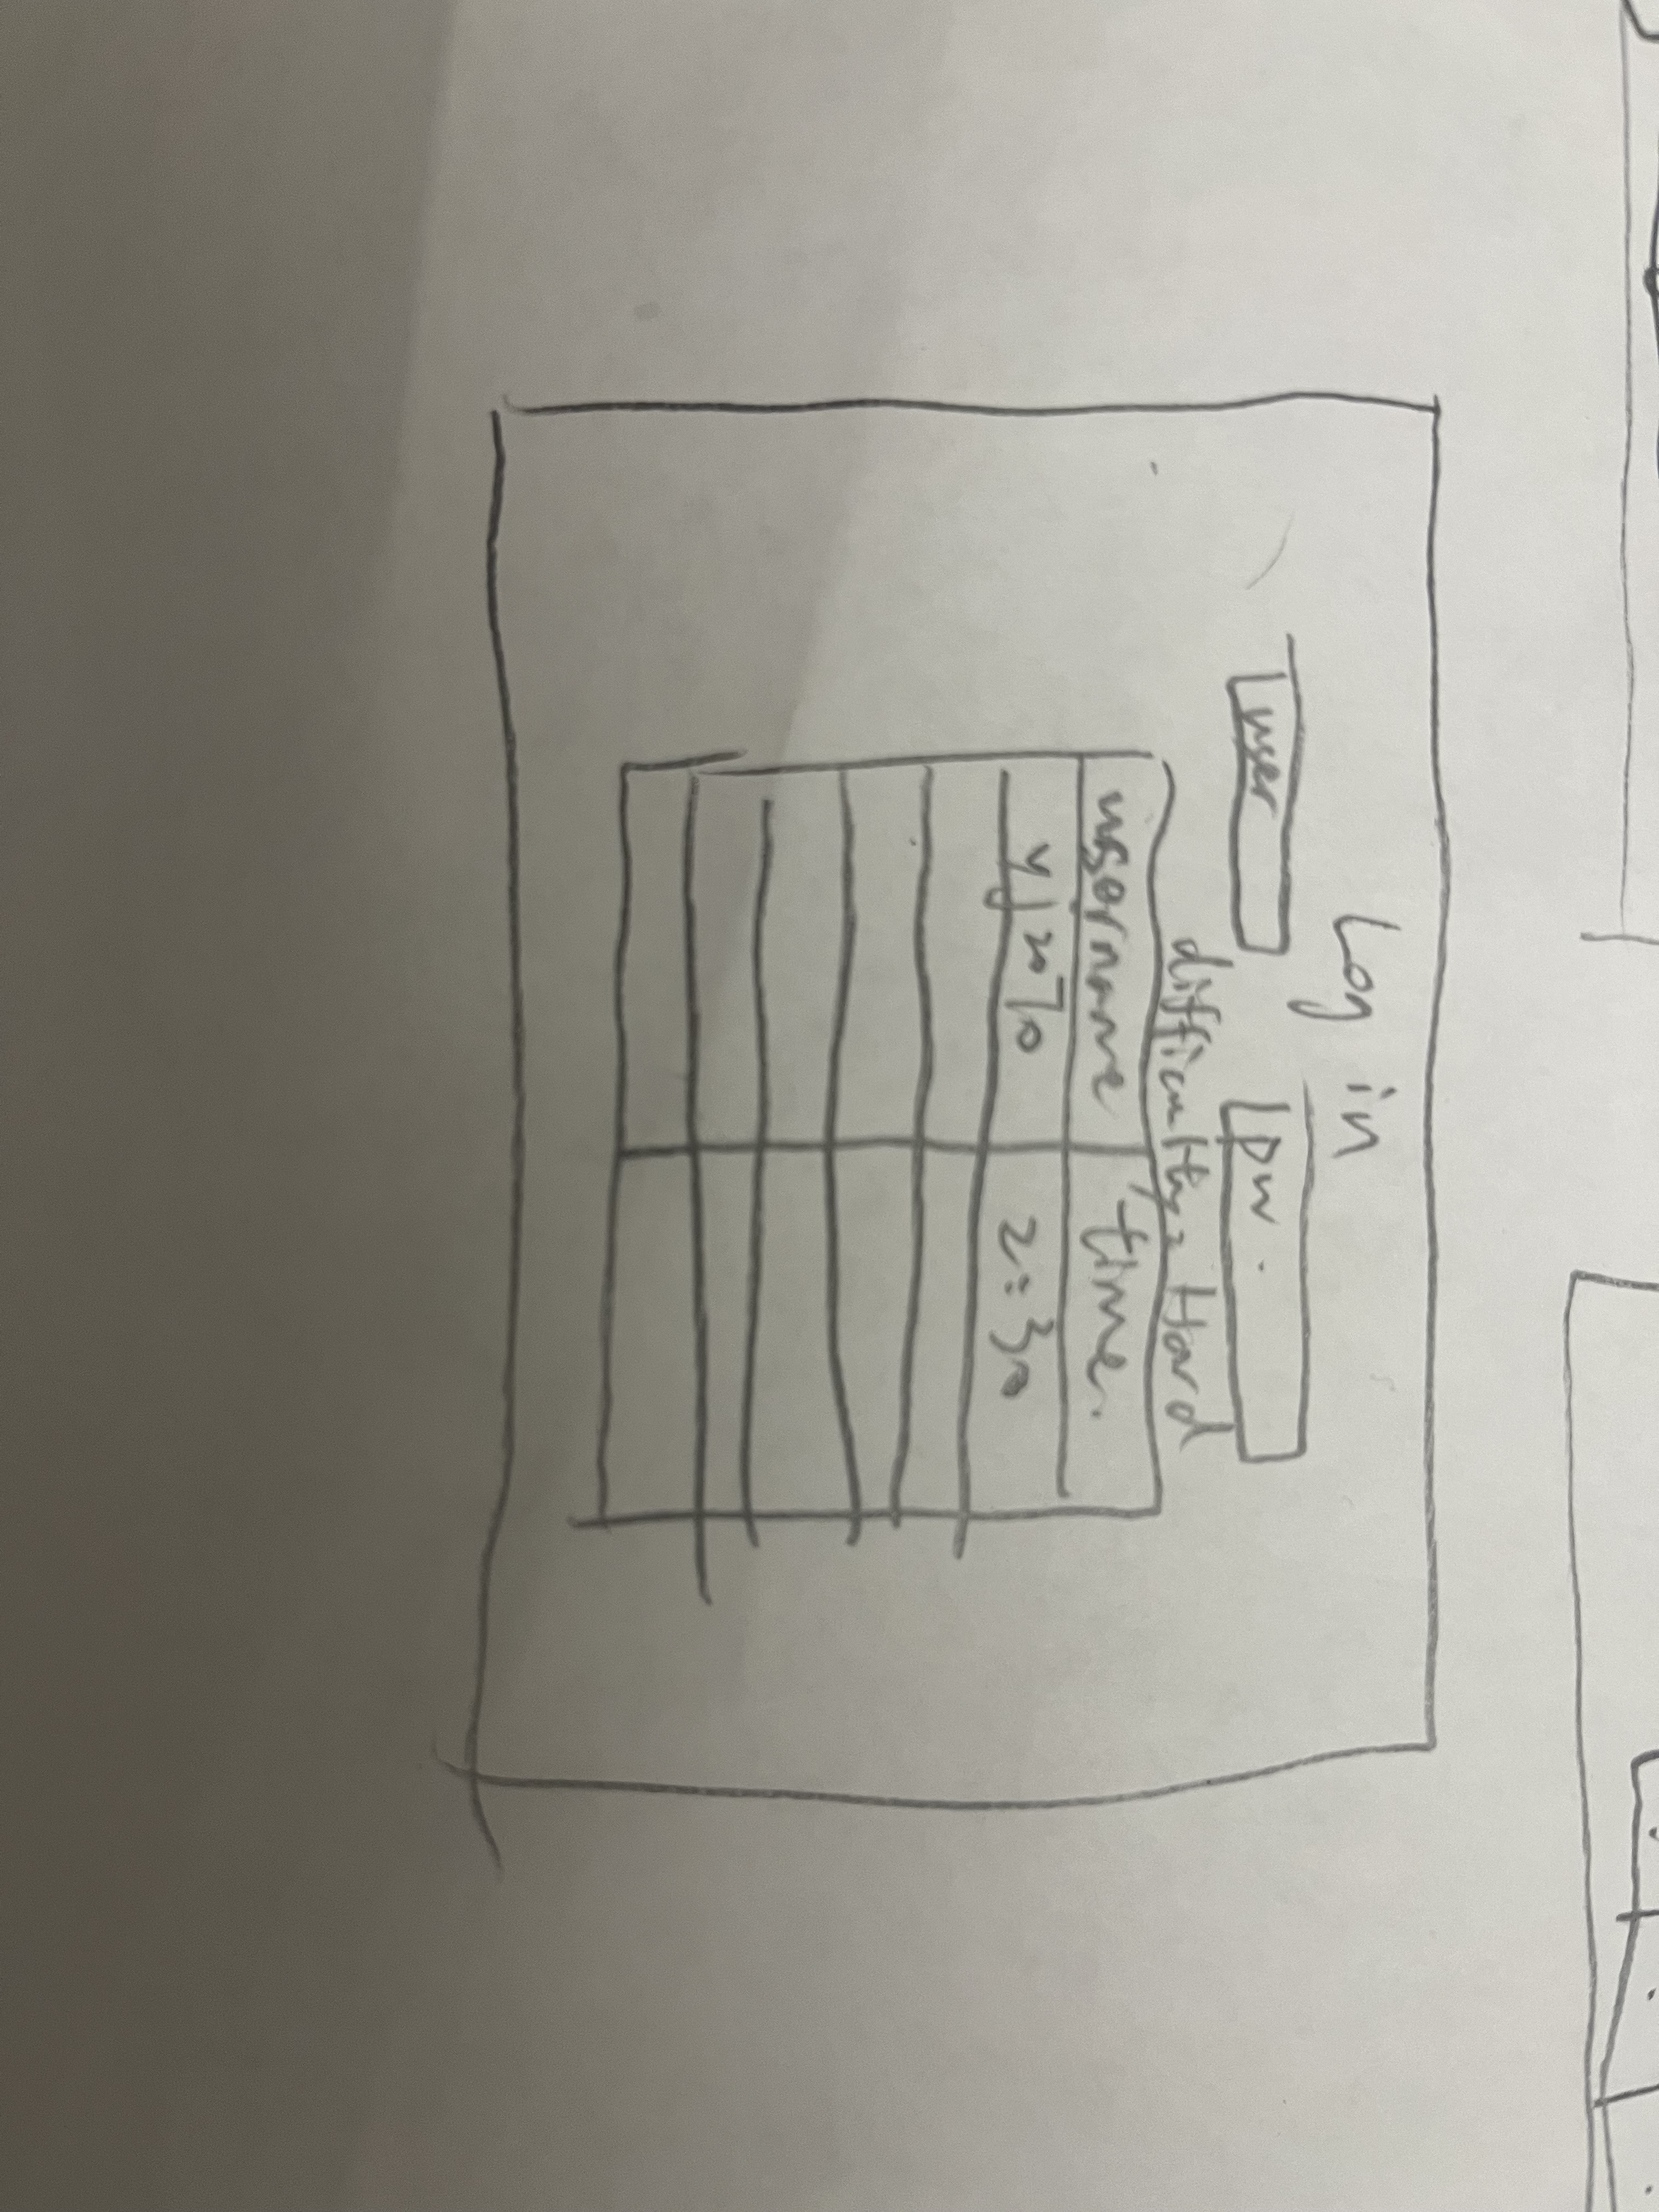 Log in
user pw.
difficulty: Hard
username time.
yj2070 2:30